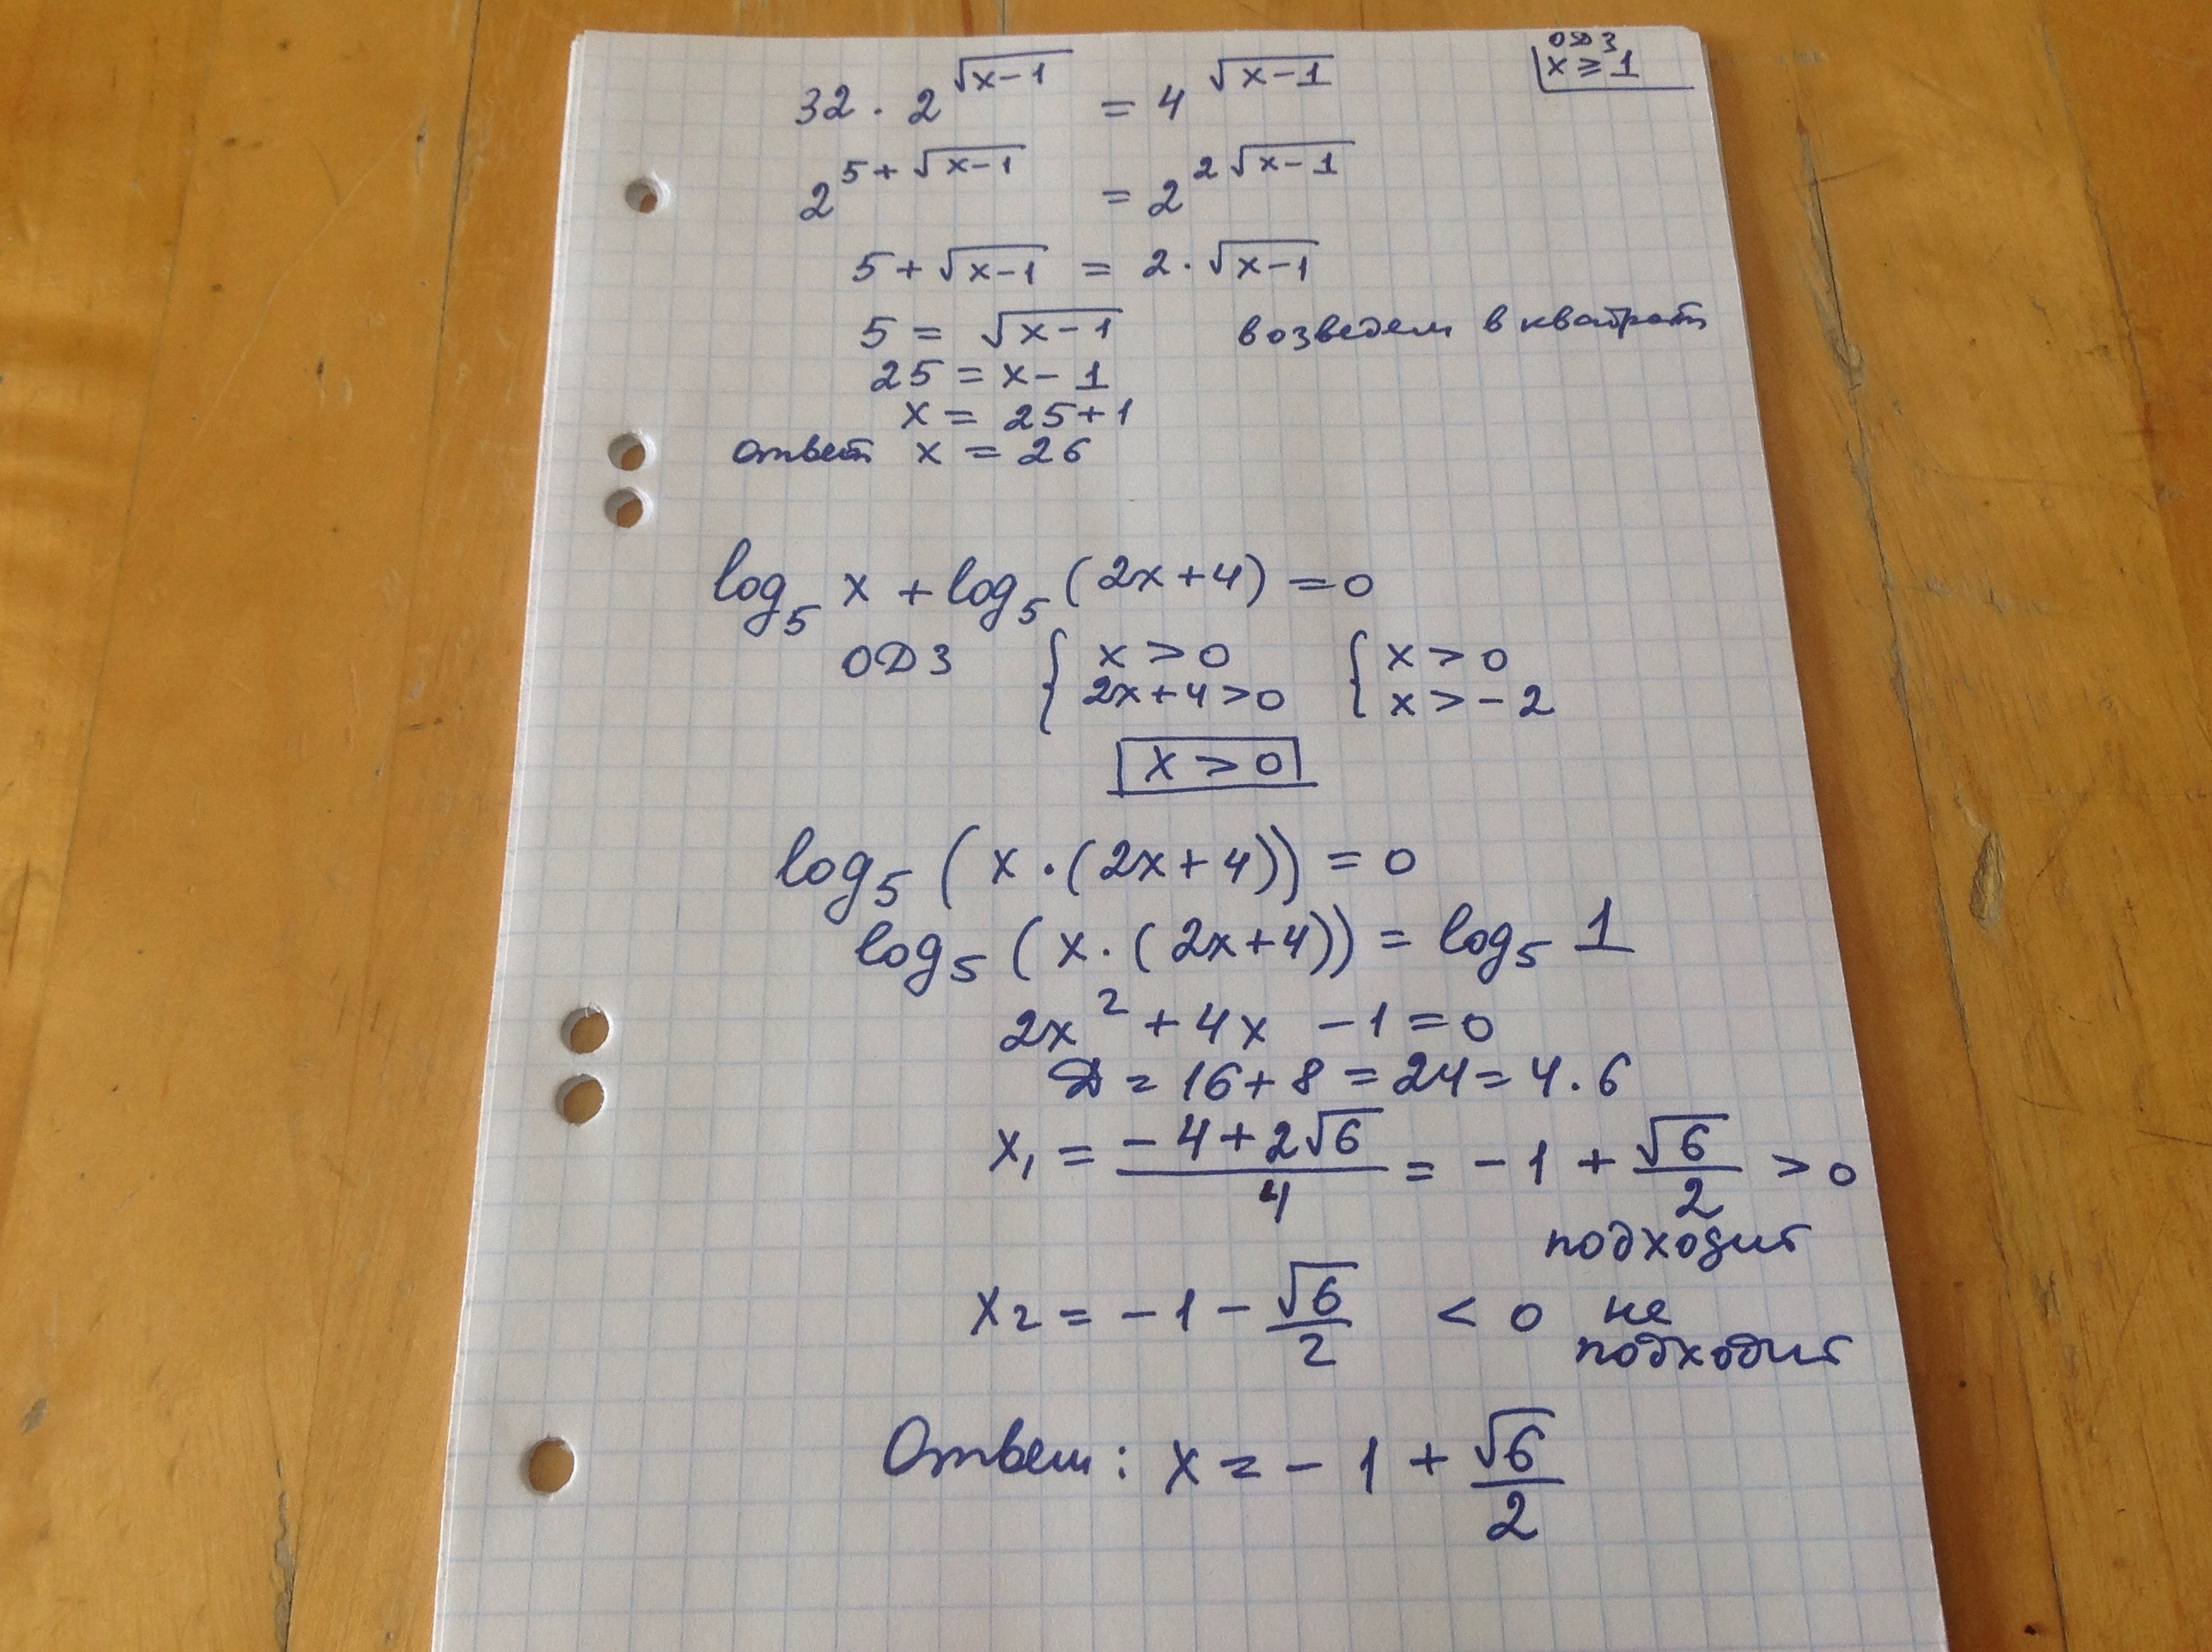 ОДЗ
x ≥ 1
32 · 2^√(x-1) = 4^√(x-1)
2^(5+√(x-1)) = 2^(2√(x-1))
5 + √(x-1) = 2 · √(x-1)
5 = √(x-1) возведем в квадрат
25 = x - 1
x = 25 + 1
ответ x = 26
log₅ x + log₅ (2x+4) = 0
ОДЗ { x > 0 { x > 0
2x+4 > 0 x > -2
x > 0
log₅ (x · (2x+4)) = 0
log₅ (x · (2x+4)) = log₅ 1
2x² + 4x - 1 = 0
D = 16 + 8 = 24 = 4 · 6
x₁ = (-4+2√6)/4 = -1 + √6/2 > 0
подходит
x₂ = -1 - √6/2 < 0 не
подходит
Ответ: x = -1 + √6/2